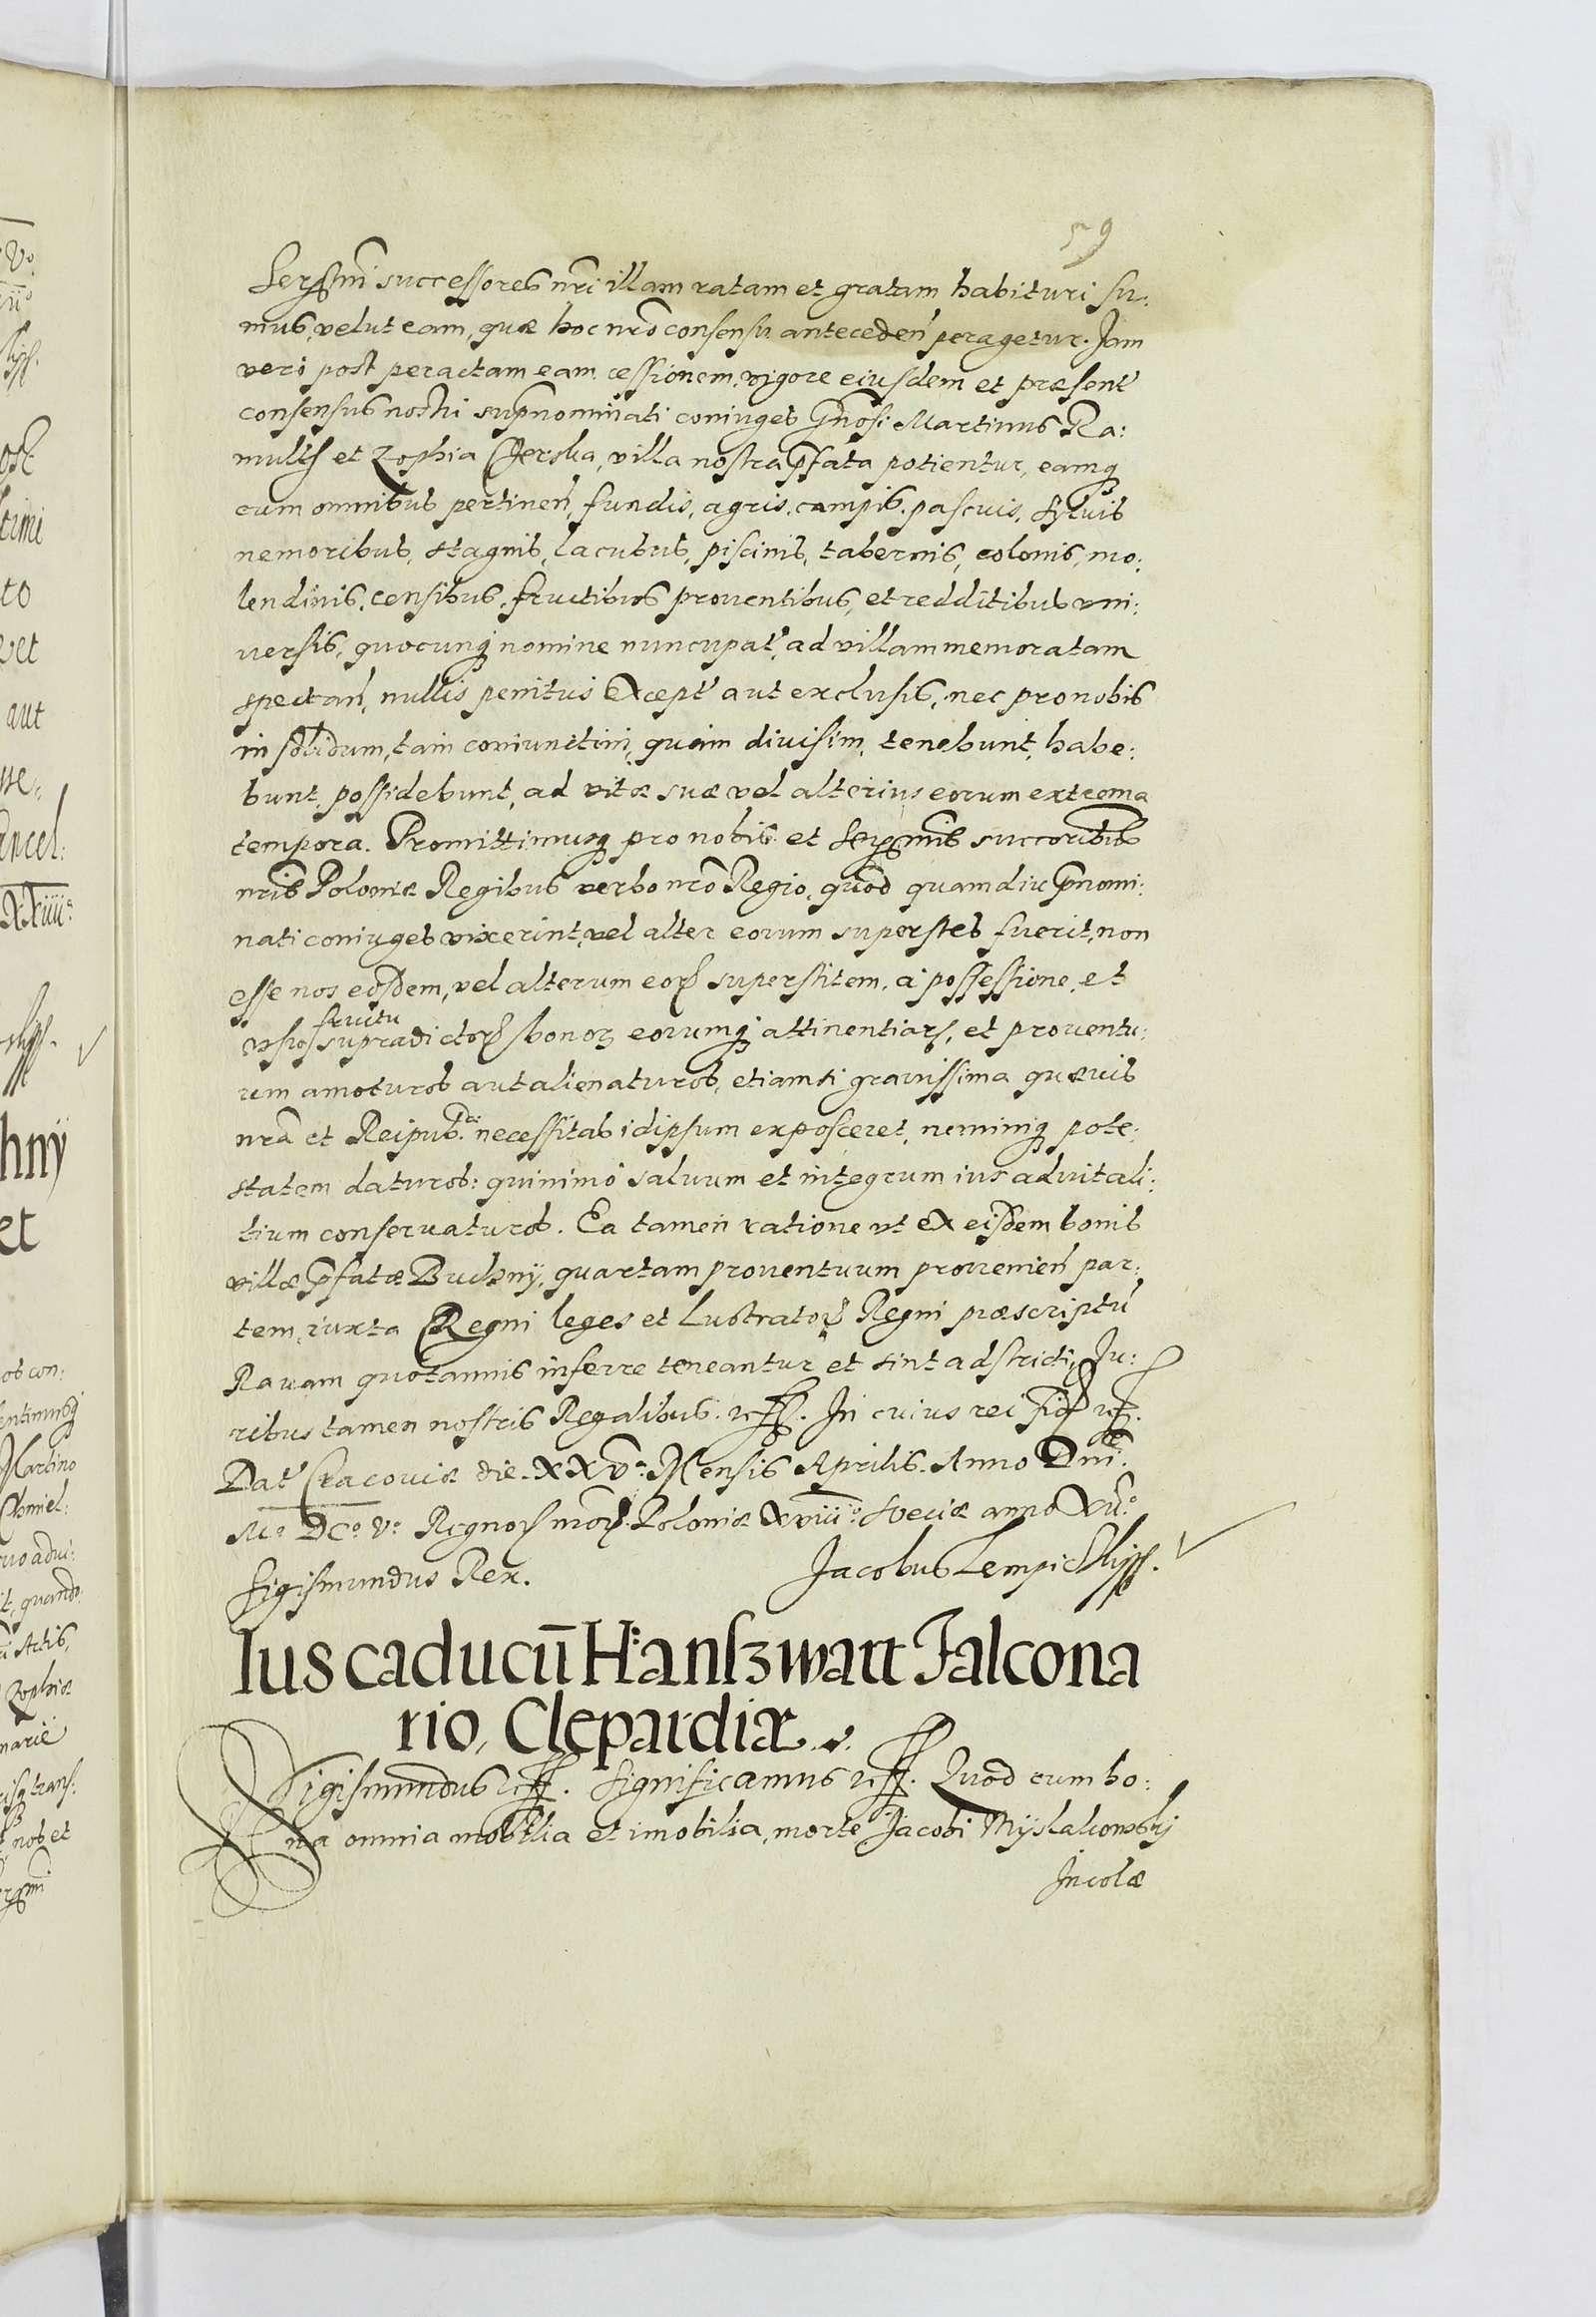 59
Serꝫmi successores nrī illam ratam et gratam habituri su:
mus, velut eam, quæ hoc nrō consensu anteceden̄ peragetur. Jam
verò post peractam eam cessionem, vigore eiusdem et præsent̄
consensus nostri sup̄nominati coniuges Gn̄osi Martinus Ra:
mułt et Zophia Czerska, villa nostra p̄fata potientur, eamq̨
cum omnibus pertinen̄, fundis, agris, campis, pascuis, syluis
nemoribus, stagnis, lacubus, piscinis, tabernis, colonis, mo:
lendinis, censibus, fructibus prouentibus, et redditibus vni:
uersis, quocunq̨ nomine nuncupat̄, ad villam memoratam
spectan̄, nullis penitus except̄ aut exclusis, nec pro nobis
in solidum, tam coniunctim, quàm diuisim, tenebunt, habe:
bunt, possidebunt, ad vitæ suæ vel alterius eorum extrema
tempora. Promittimusq̨ pro nobis et Serꝫmis succoribus
nrīs Poloniæ Regibus verbo nrō Regio, quòd quamdiu p̄nomi:
nati coniuges vixerint, vel alter eorum superstes fuerit, non
esse nos eosdem, vel alterum eorꝝ superstitem, à possessione, et
fruitu
vsuq̨ supradictorꝝ bonorꝫ eorumq̨ attinentiarꝝ, et prouentu:
um amoturos aut alienaturos, etiamsi grauissima quæuis
nrā et Reipub:cæ necessitas idipsum exposceret, neminiq̨ pote:
statem daturos: quinimò saluum et integrum ius aduitali:
tium conseruaturos. Ea tamen ratione vt ex eisdem bonis
villæ p̄fatæ Buchny, quartam prouentuum prouenien̄ par:
tem, iuxta Regni leges et Lustratorꝝ Regni præscriptū
Rauam quotannis inferre teneantur et sint adstricti, Ju:
ribus tamen nostris Regalibus etc. In cuius rei fid etc.
Dat̄ Cracouiæ die XXVa Mensis Aprilis. Anno Dnī.
Mo DCo Vo Regnorꝝ nrōrꝝ Poloniæ XVIIIo Sueciæ anno XIIo
Sigismundus Rex. Jacobus Lempicki ss.
Ius caducū Hansz watt Falcona
rio, Clepardiæ
Sigismundus etc. Significamus etc. Quod cum bo:
na omnia mobilia et imobilia, morte Jacobi Myslakowskj
Jncolæ